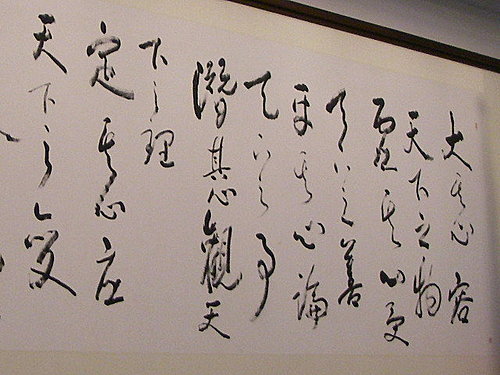 大其心容
天下之物
虚其心受
天下之善
平其心論
天下之事
潛其心觀天
下之理
定其心应
天下之變